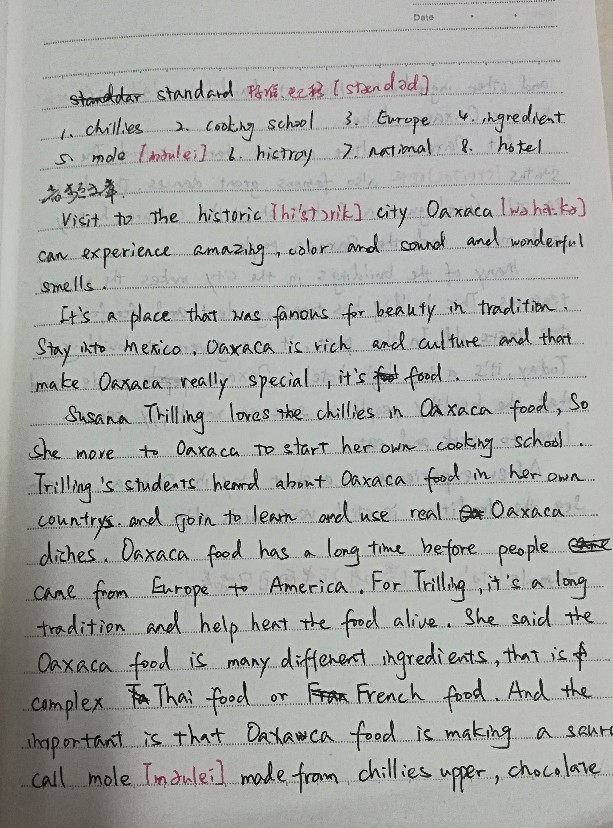 Date
standdar standard 标准 [stændəd]
1. chillies 2. cooking school 3. Europe 4. ingredient
5. mole [məulei] 6. hictroy 7. national 8. hotel
Visit to the historic [hi'stɔrik] city Oaxaca [wəha:kə]
can experience amazing, color and sound and wonderful
smells.
It's a place that was famous for beauty in tradition.
Stay into Mexico, Oaxaca is rich and culture and that
make Oaxaca really special, it's food.
Susana Trilling loves the chillies in Oaxaca food, So
she move to Oaxaca to start her own cooking school.
Trilling's students heard about Oaxaca food in her own
countrys. and join to learn and use real Oaxaca
diches. Oaxaca food has a long time before people
came from Europe to America. For Trilling, it's a long
tradition and help heat the food alive. She said the
Oaxaca food is many different ingredients, that is
complex Thai food or French food. And the
important is that Oaxawca food is making a
call mole [məulei] made from chillies upper, chocolate